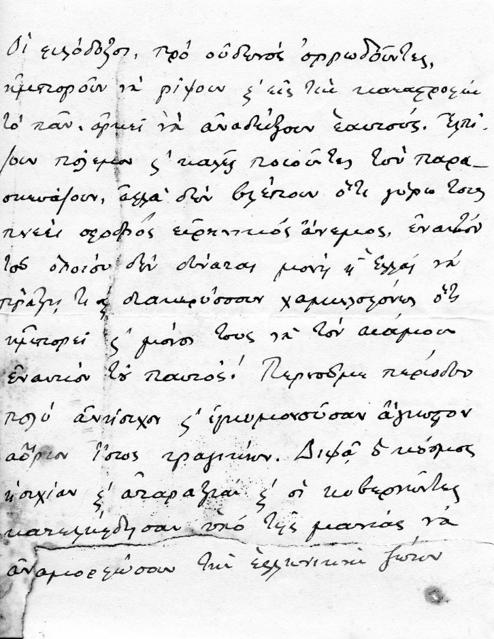 Οἱ φιλόδοξοι, πρὸ οὐδενὸς ὀρρωδοῦντες,
ἠμποροῦν νὰ ρίψουν κ' εἰς τὴν καταστροφὴν
τὸ πᾶν, ἀρκεῖ νὰ ἀναδείξουν ἑαυτούς. Ἐλπί-
ζουν πόλεμον κ' καλῶς ποιοῦντες τὸν παρα-
σκευάζουν, ἀλλὰ δὲν βλέπουν ὅτι γύρω τους
πνέει σφοδρὸς εἰρηνικὸς ἄνεμος, ἐναντίον
τοῦ ὁποίου δὲν δύναται μονὴ ἡ Ἑλλὰς νὰ
πράξῃ τι κ διακηρύσσουν ὅτι
ἠμπορεῖ κ' μόνοι τους νὰ τὸν κάμουν
ἐναντίον τοῦ παντός! Περνοῦμε περίοδον
πολὺ ἀνήσυχον κ' ἐγκυμονοῦσαν ἄγνωστον
αὔριον ἴσως τραγικόν. Διψᾷ ὁ κόσμος
ἡσυχίαν κ' ἀταραξίαν κ' οἱ κυβερνῶντες
κατελήφθησαν ὑπὸ τῆς μανίας νὰ
ἀναμορφώσουν τὴν ἑλληνικὴν ζωὴν